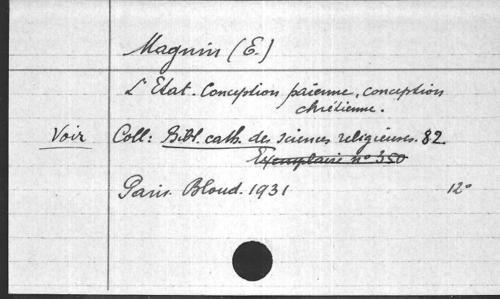 Magnin (E.)
L'Etat. Conception païenne, conception
chrétienne.
Voir Coll: Bibl. cath. des sciences religieuses. 82.
Exemplaire n° 350
Paris. Bloud. 1931 12°